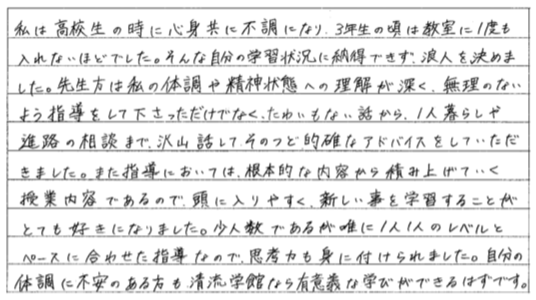 私は高校生の時に心身共に不調になり、3年生の頃は教室に1度も
入れないほどでした。そんな自分の学習状況に納得できず、浪人を決めま
した。先生方は私の体調や精神状態への理解が深く、無理のない
よう指導をして下さっただけでなく、たわいもない話から、1人暮らしや
進路の相談まで、沢山話して、そのつど的確なアドバイスをしていただ
きました。また指導においては、根本的な内容から積み上げていく
授業内容であるので、頭に入りやすく、新しい事を学習することが
とても好きになりました。少人数であるが唯に1人1人のレベルと
ペースに合わせた指導なので、思考力も身に付けられました。自分の
体調に不安のある方も清流学館なら有意義な学びができるはずです。